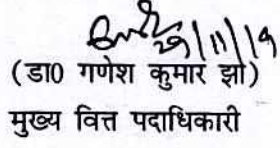 29/11/19
(डा0 गणेश कुमार झा)
मुख्य वित्त पदाधिकारी